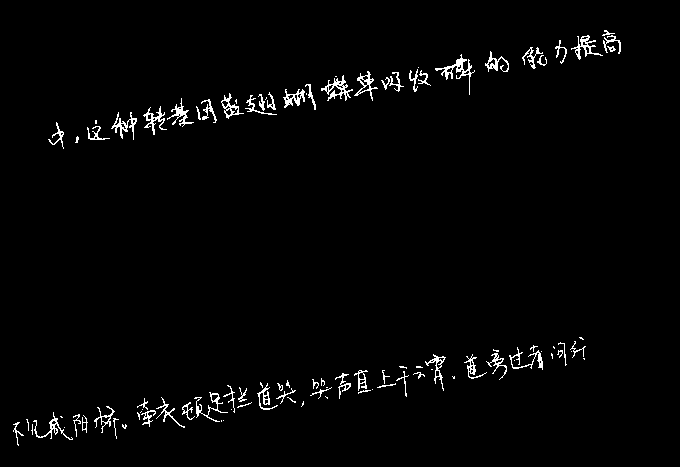 中,这种转基因蓝翅蝴蝶草吸收磷的能力提高
不见咸阳桥。牵衣顿足拦道哭,哭声直上干云霄。道旁过者问行